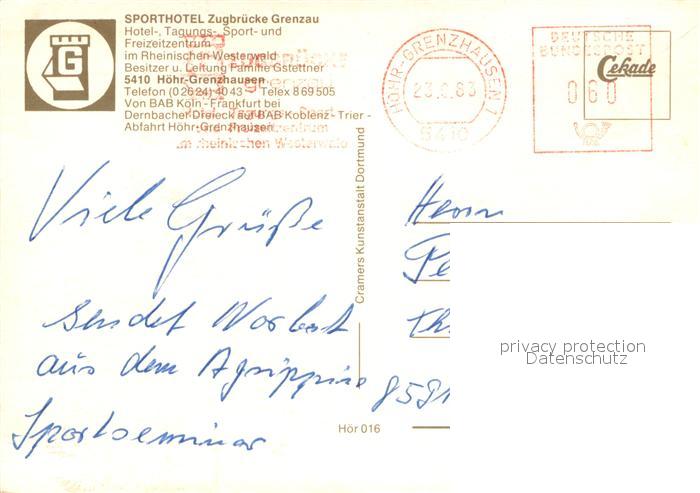 SPORTHOTEL Zugbrücke Grenzau
Hotel-, Tagungs-, Sport- und
Freizeitzentrum
im Rheinischen Westerwald
Besitzer u. Leitung Familie Gstettner
5410 Höhr-Grenzhausen
Telefon (02624) 4043 Telex 869505
Von BAB Köln-Frankfurt bei
Dernbacher Dreieck auf BAB Koblenz-Trier-
Abfahrt Höhr-Grenzhausen
m rheinischen Westerwald
HÖHR-GRENZHAUSEN 1
23.6.83
5410
DEUTSCHE
BUNDESPOST
060
Cekade
Viele Grüße
sendet Norbert
aus dem Agrippina
Sportseminar
Cramers Kunstanstalt Dortmund
Hör 016
Herrn
Pe
Th
8591
privacy protection
Datenschutz